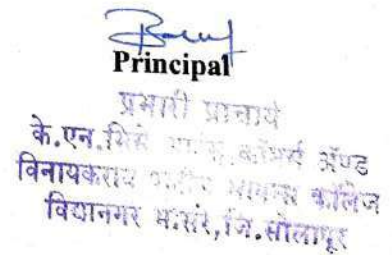 Principal
प्रभारी प्राचार्य
के.एन.भिसे कॉमर्स अॅण्ड
विनायकराव कॉलेज
विद्यानगर भोसरे, जि.सोलापूर